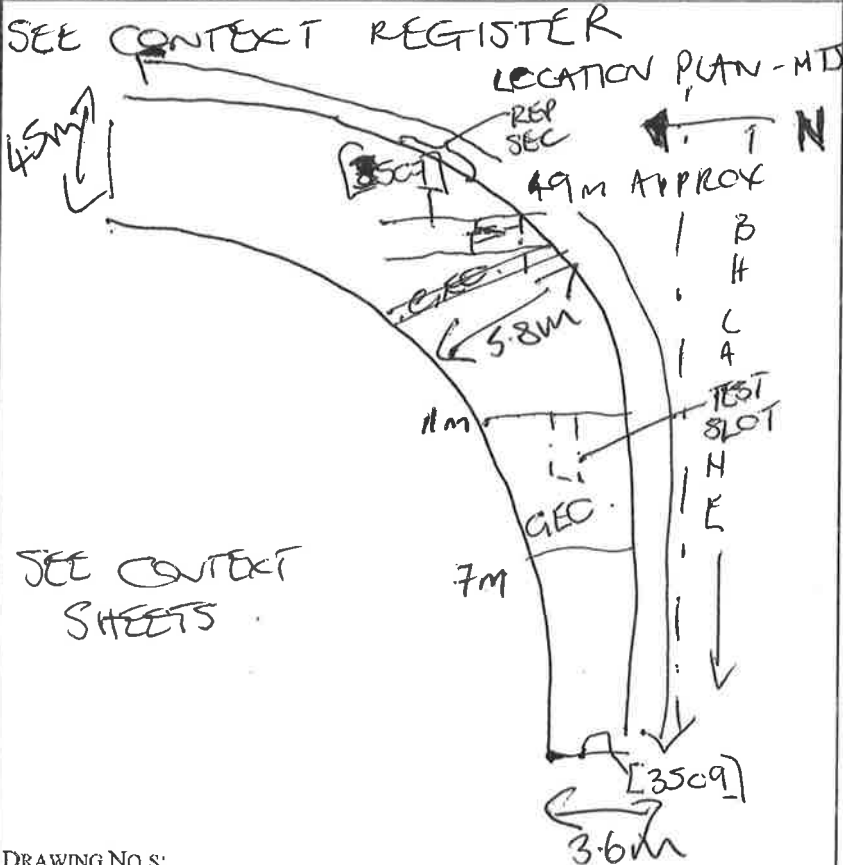 SEE CONTEXT REGISTER
LOCATION PLAN - MTS
N
4.5m
REP
SEC
[3509]
49m APPROX
GEC.
5.8m
11m
TEST
SLOT
GEC.
7m
SEE CONTEXT
SHEETS.
[3509]
3.6m
DRAWING NO.S: